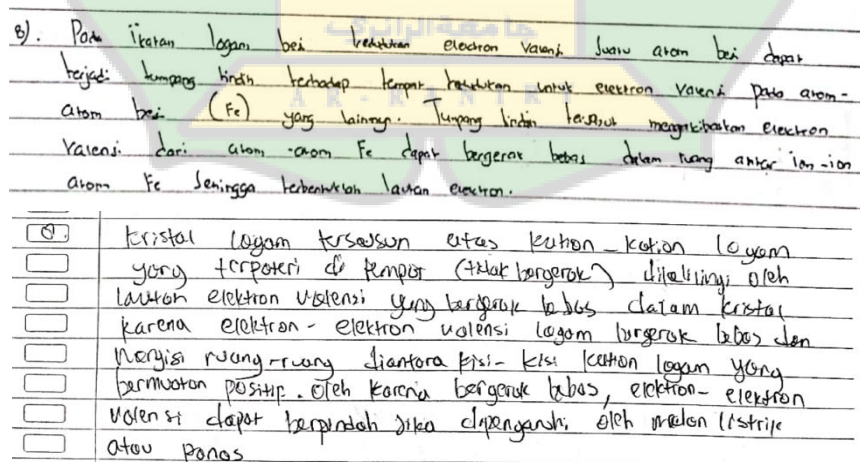 8). Pada ikatan logam besi kedudukan electron valensi suatu atom besi dapat
terjadi tumpang tindih terhadap tempat kedudukan untuk elektron valensi pada atom-
atom besi (Fe) yang lainnya. Tumpang tindih tersebut mengakibatkan electron
Valensi dari atom-atom Fe dapat bergerak bebas dalam ruang antar ion-ion
atom Fe Sehingga terbentuklah lautan electron.
جامعة الرانري
AR-RANIRY
8. kristal logam tersusun atas kation-kation logam
yang terpateri di tempat (tidak bergerak) dikelilingi oleh
lautan elektron valensi yang bergerak bebas dalam kristal
karena elektron-elektron valensi logam bergerak bebas dan
Mengisi ruang-ruang diantara kisi-kisi kation logam yang
bermuatan positif. Oleh karena bergerak bebas, elektron-elektron
valensi dapat berpindah jika dipengaruhi oleh medan listrik
atau panas